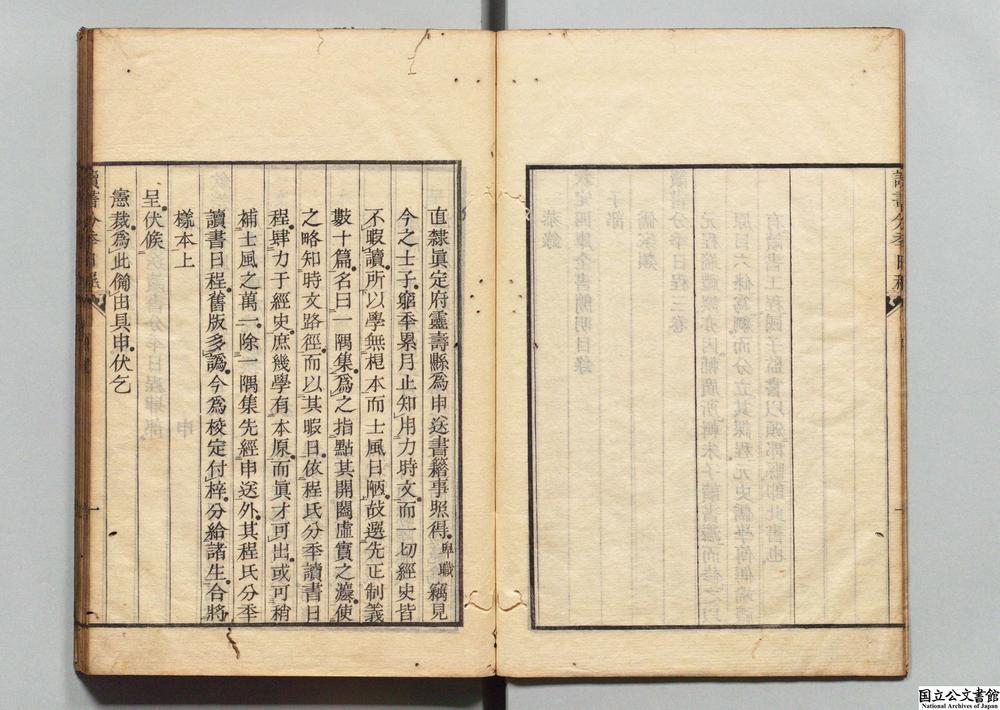 直隸眞定府靈壽縣爲申送書籍事照得卑職竊見
今之士子窮季累月止知用力時文而一切經史皆
不暇讀所以學無根本而士風日陋故選先正制義
數十篇名曰一隅集爲之指點其開闔虛實之灋使
之略知時文路徑而以其暇日依程氏分季讀書日
程肆力于經史庶幾學有本原而眞才可出或可稍
補士風之萬一除一隅集先經申送外其程氏分季
讀書日程舊版多譌今爲校定付梓分給諸生合將
樣本上
呈伏候
憲裁爲此備由具申伏乞
讀書分季日程
一
国立公文書館
National Archives of Japan